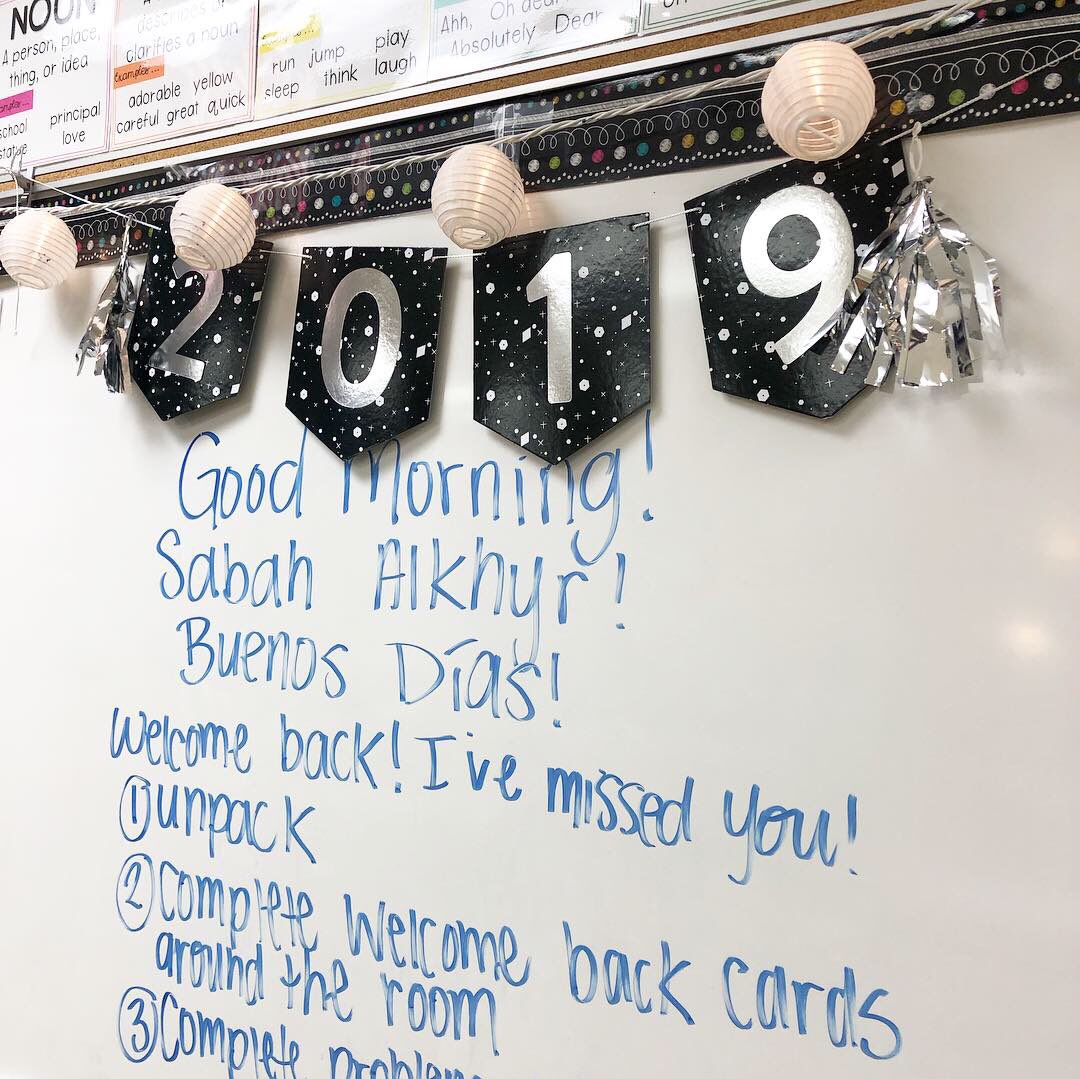 NOUN
A person, place,
thing, or idea
school principal
statue love
describes a
clarifies a noun
Examples...
adorable yellow
careful great quick
run jump play
sleep think laugh
Ahh, Oh dear
Absolutely Dear
2019
Good Morning!
Sabah Alkhyr!
Buenos Días!
Welcome back! I've missed you!
① unpack
② Complete Welcome back cards
around the room
③ Complete